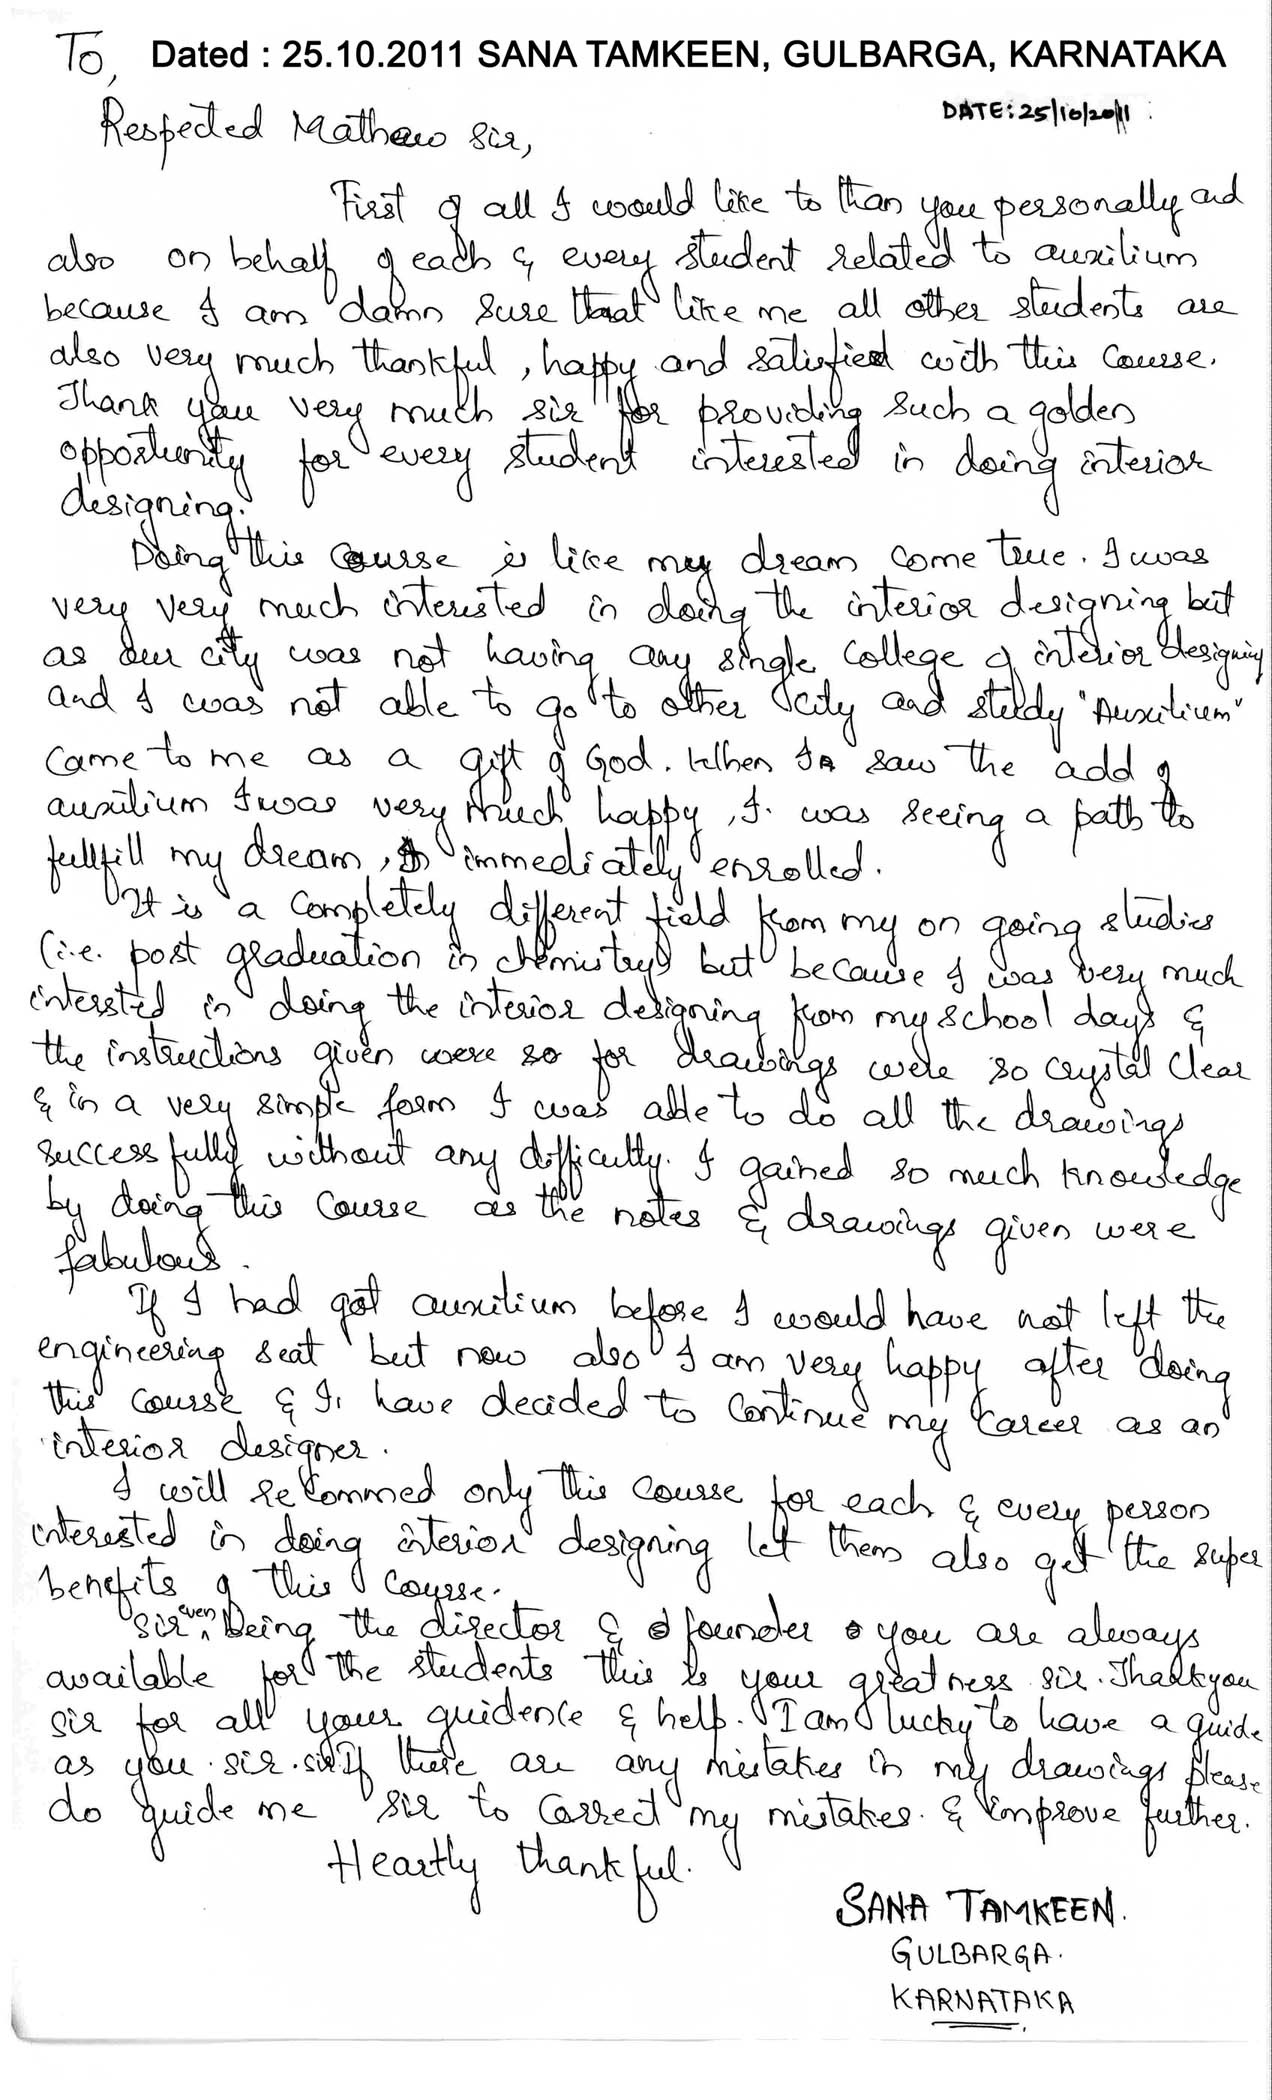 To, Dated : 25.10.2011 SANA TAMKEEN, GULBARGA, KARNATAKA
DATE: 25/10/2011
Respected Mathew Sir,
First of all I would like to than you personally and
also on behalf of each & every student related to auxilium
because I am damn sure that like me all other students are
also very much thankful, happy and satisfied with this course.
Thank you very much sir for providing such a golden
opportunity for every student interested in doing interior
designing.
Doing this course is like my dream come true. I was
very very much interested in doing the interior designing but
as our city was not having any single college of interior designing
and I was not able to go to other city and study "Auxilium"
came to me as a gift of God. When I saw the add of
auxilium I was very much happy, I was seeing a path to
fullfill my dream, I immediately enrolled.
It is a completely different field from my on going studies
(i.e. post graduation in chemistry) but because I was very much
interssted in doing the interior designing from my school days &
the instructions given were so for drawings were so crystal clear
& in a very simple form I was able to do all the drawings
successfully without any difficulty. I gained so much knowledge
by doing this course as the notes & drawings given were
fabulous.
If I had got auxilium before I would have not left the
engineering seat but now also I am very happy after doing
this course & I have decided to continue my career as an
interior designer.
I will recommed only this course for each & every person
interested in doing interior designing let them also get the super
benefits of this course.
Sir, even being the director & founder you are always
available for the students this is your greatness sir. Thankyou
sir for all your guidence & help. I am lucky to have a guide
as you sir. sir If there are any mistakes in my drawings please
do guide me sir to correct my mistakes. & improve further.
Heartly thankful.
SANA TAMKEEN.
GULBARGA.
KARNATAKA